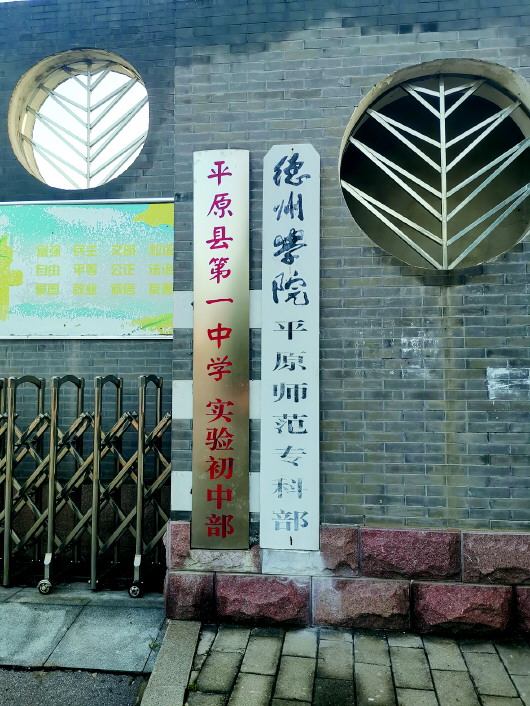 富强 民主 文明 和谐
自由 平等 公正 法治
爱国 敬业 诚信 友善
平原县第一中学 实验初中部
德州学院平原师范专科部